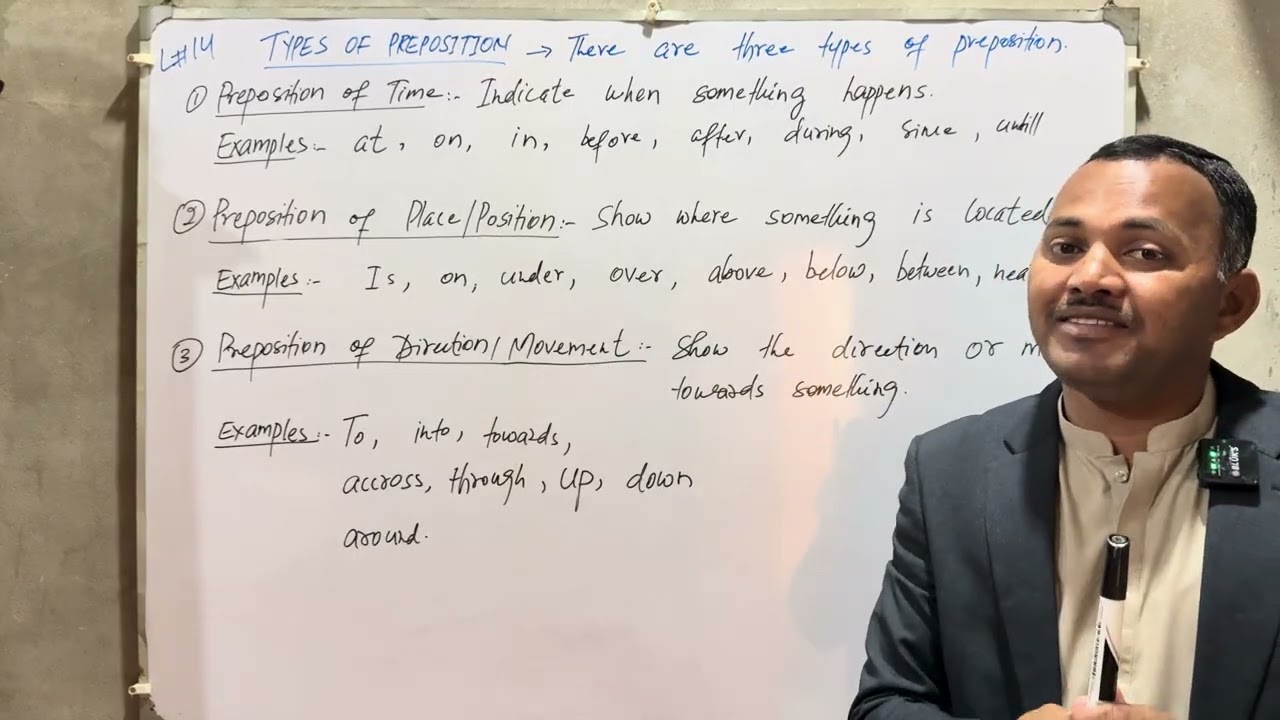 L#14 TYPES OF PREPOSITION → There are three types of preposition.
① Preposition of Time:- Indicate when something happens.
Examples:- at, on, in, before, after, during, since, untill
② Preposition of Place/Position:- Show where something is located
Examples:- Is, on, under, over, above, below, between,
③ Preposition of Direction/Movement:- Show the direction or
towards something.
Examples:- To, into, towards,
accross, through, up, down
around.